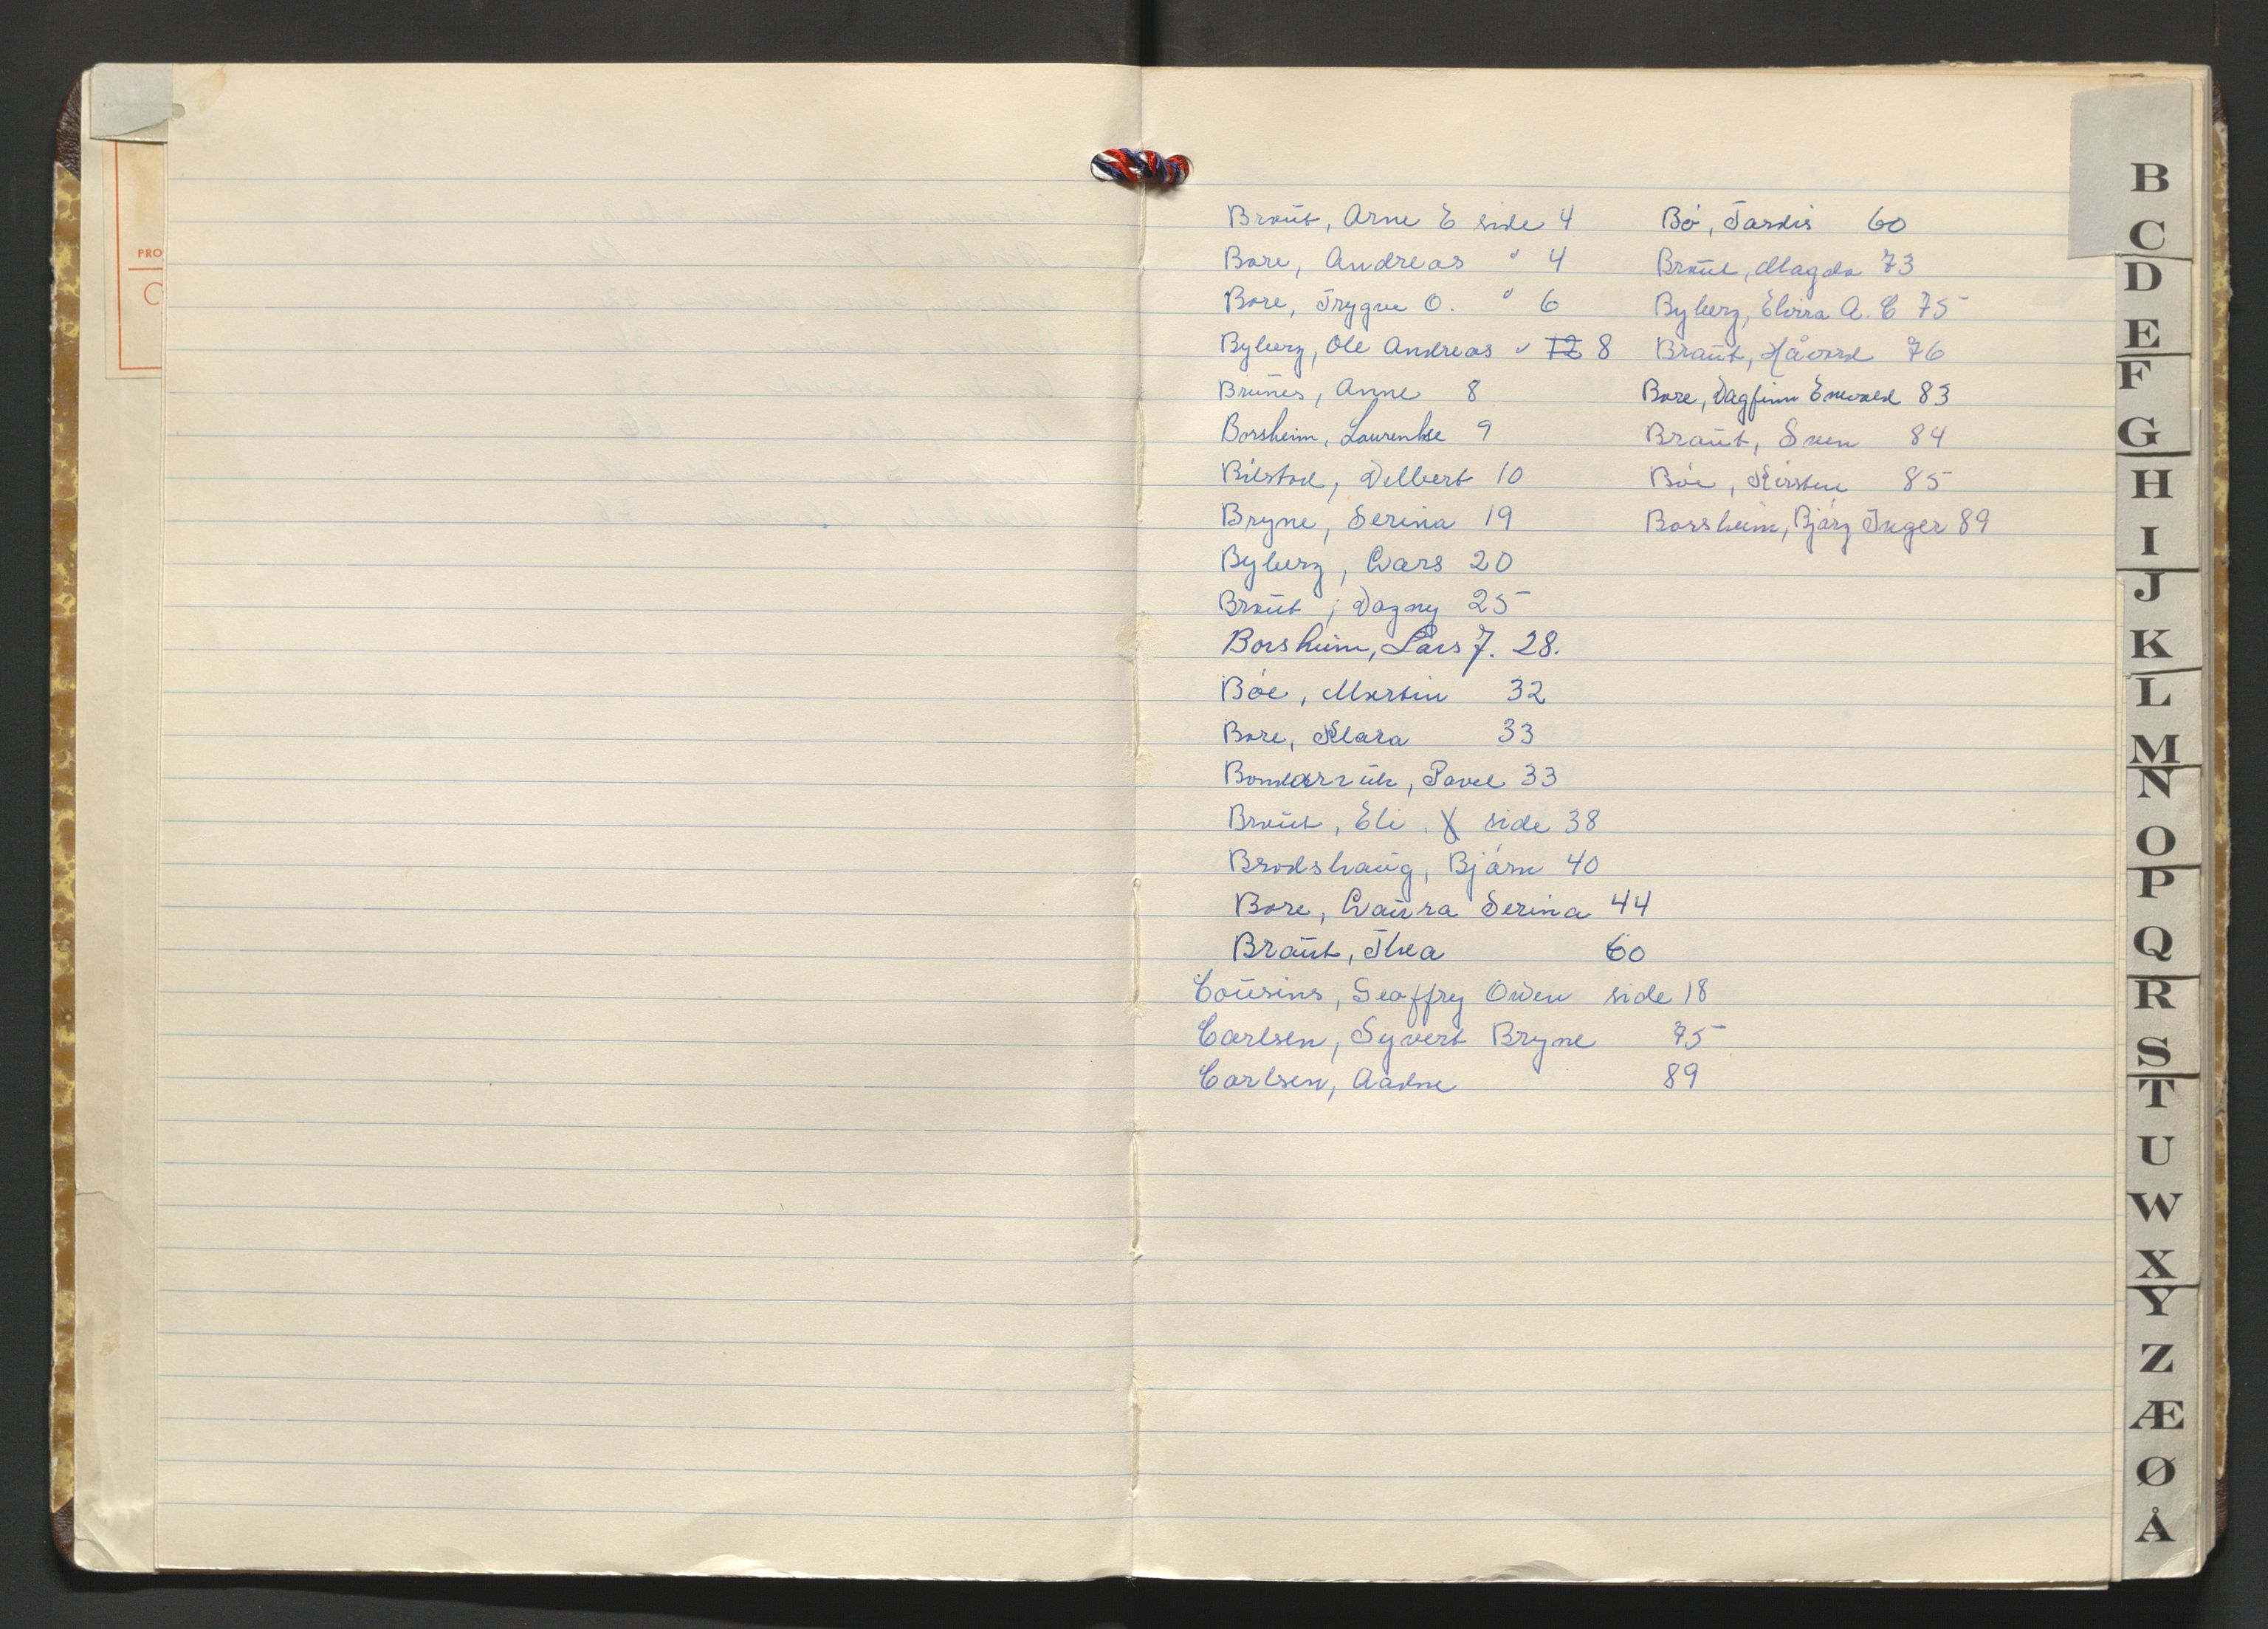 PRO
C
Braut, Arne E side 4
Bore, Andreas " 4
Bore, Trygve O. " 6
Byberg, Ole Andreas " 12 8
Brunes, Anne 8
Borsheim, Laurentse 9
Bilstad, Delbert 10
Bryne, Serina 19
Byberg, Lars 20
Braut, Dagny 25
Borsheim, Lars J. 28.
Bøe, Martin 32
Bore, Klara 33
Bondarzuk, Pavel 33
Braut, Eli side 38
Brodshaug, Bjørn 40
Bore, Laura Serina 44
Braut, Thea 60
Cousins, Geoffry Owen side 18
Carlsen, Syvert Bryne 75
Carlsen, Aadne 89
Bø, Tordis 60
Braut, Magda 73
Byberg, Elvira A. C 75
Braut, Håvard 76
Bore, Dagfinn Enevald 83
Braut, Sven 84
Bøe, Kirsten 85
Borsheim, Bjørg Inger 89
B
C
D
E
F
G
H
I
J
K
L
M
N
O
P
Q
R
S
T
U
W
X
Y
Z
Æ
Ø
Å